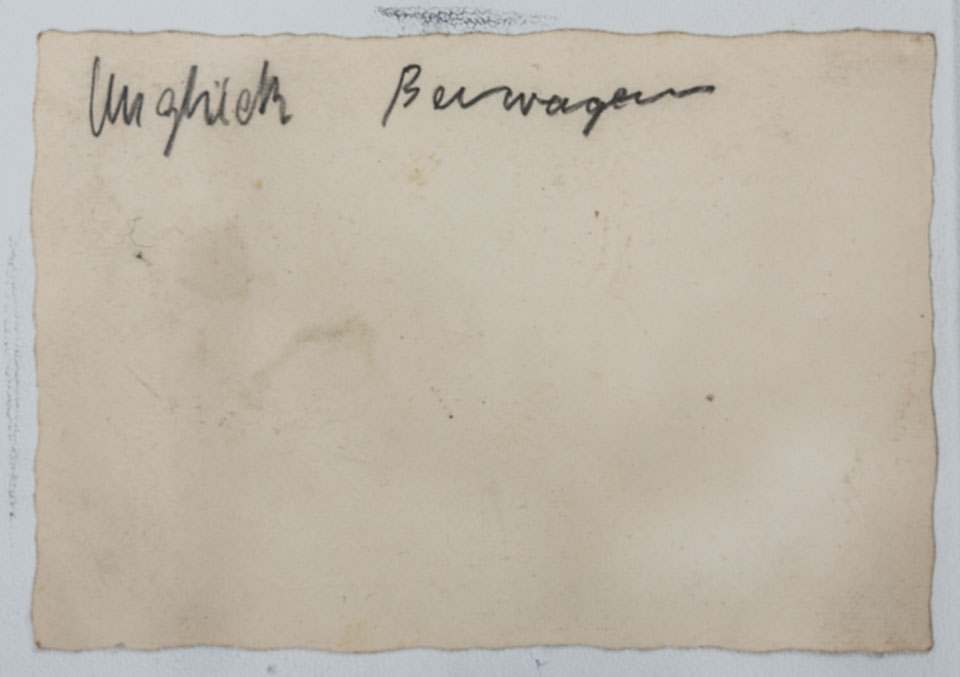 Unglück Beiwagen